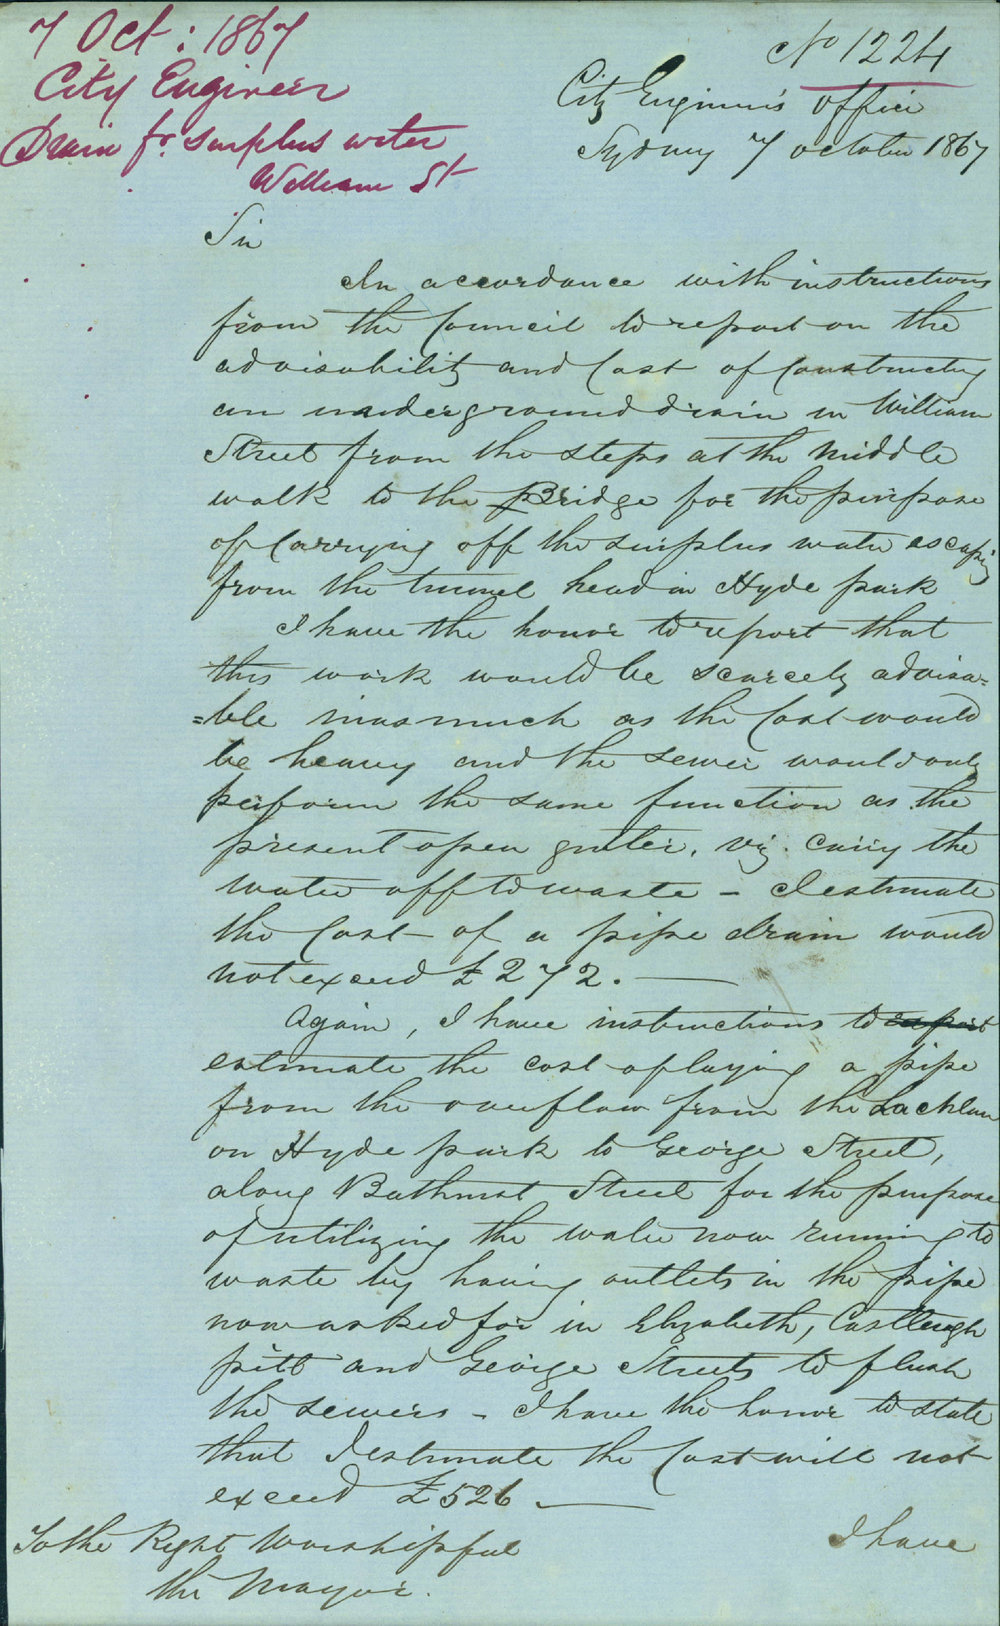 7 Oct : 1867
City Engineer
Drain for surplus water
William St
No 1224
City Engineer's office
Sydney 7 october 1867
Sir
In accordance with instructions
from the Council to report on the
advisability and Cost of Constructing
an underground drain in William
Street from the steps at the middle
walk to the Bridge for the purpose
of Carrying off the surplus water escaping
from the tunnel head in Hyde park
I have the honor to report that
this work would be scarcely advisa=
=ble inasmuch as the Cost would
be heavy and the sewer would only
perform the same function as the
present open gutter, viz. carry the
water off to waste – I estimate
the Cost of a pipe drain would
not exceed £272. —
Again, I have instructions to report
estimate the cost of laying a pipe
from the overflow from the Lachlan
on Hyde park to George Street,
along Bathurst Street for the purpose
of utilizing the water now running to
waste by having outlets in the pipe
now asked for in Elizabeth, Castlereagh
pitt and George Streets to flush
the sewers – I have the honor to state
that I estimate the Cost will not
exceed £526 —
I have
To the Right Worshipful
the Mayor.